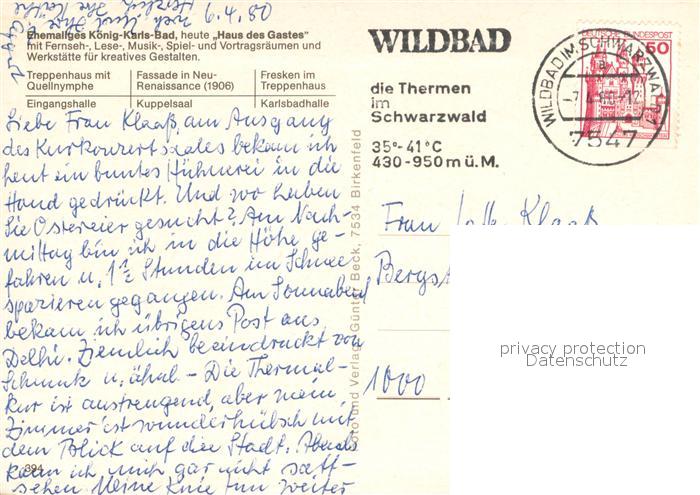 6.4.80
Ehemaliges König-Karls-Bad, heute „Haus des Gastes"
mit Fernseh-, Lese-, Musik-, Spiel- und Vortragsräumen und
Werkstätte für kreatives Gestalten.
Treppenhaus mit
Quellnymphe
Fassade in Neu-
Renaissance (1906)
Fresken im
Treppenhaus
Eingangshalle
Kuppelsaal
Karlsbadhalle
Liebe Frau Klaaß, am Ausgang
des Kurkonzertsaales bekam ich
heut ein buntes Hühnerei in die
Hand gedrückt. Und wo haben
Sie Ostereier gesucht? Am Nach-
mittag bin ich in die Höhe ge-
fahren u. 1½ Stunden im Schnee
spazieren gegangen. Am Sonnabend
bekam ich übrigens Post aus
Delhi. Ziemlich beeindruckt von
Schmuck u. ähnl - Die Thermal-
kur ist anstrengend, aber mein
Zimmer ist wunderhübsch mit
dem Blick auf die Stadt. Abends
kann ich mich gar nicht satt-
sehen. Meine Knie tun weiter
394
Foto und Verlag Günter Beck, 7534 Birkenfeld
WILDBAD
die Thermen
im
Schwarzwald
35°-41°C
430-950m ü.M.
DEUTSCHE BUNDESPOST
50
WILDBAD IM SCHWARZWALD
a
7547
Frau Klaaß
Bergst
1000
privacy protection
Datenschutz